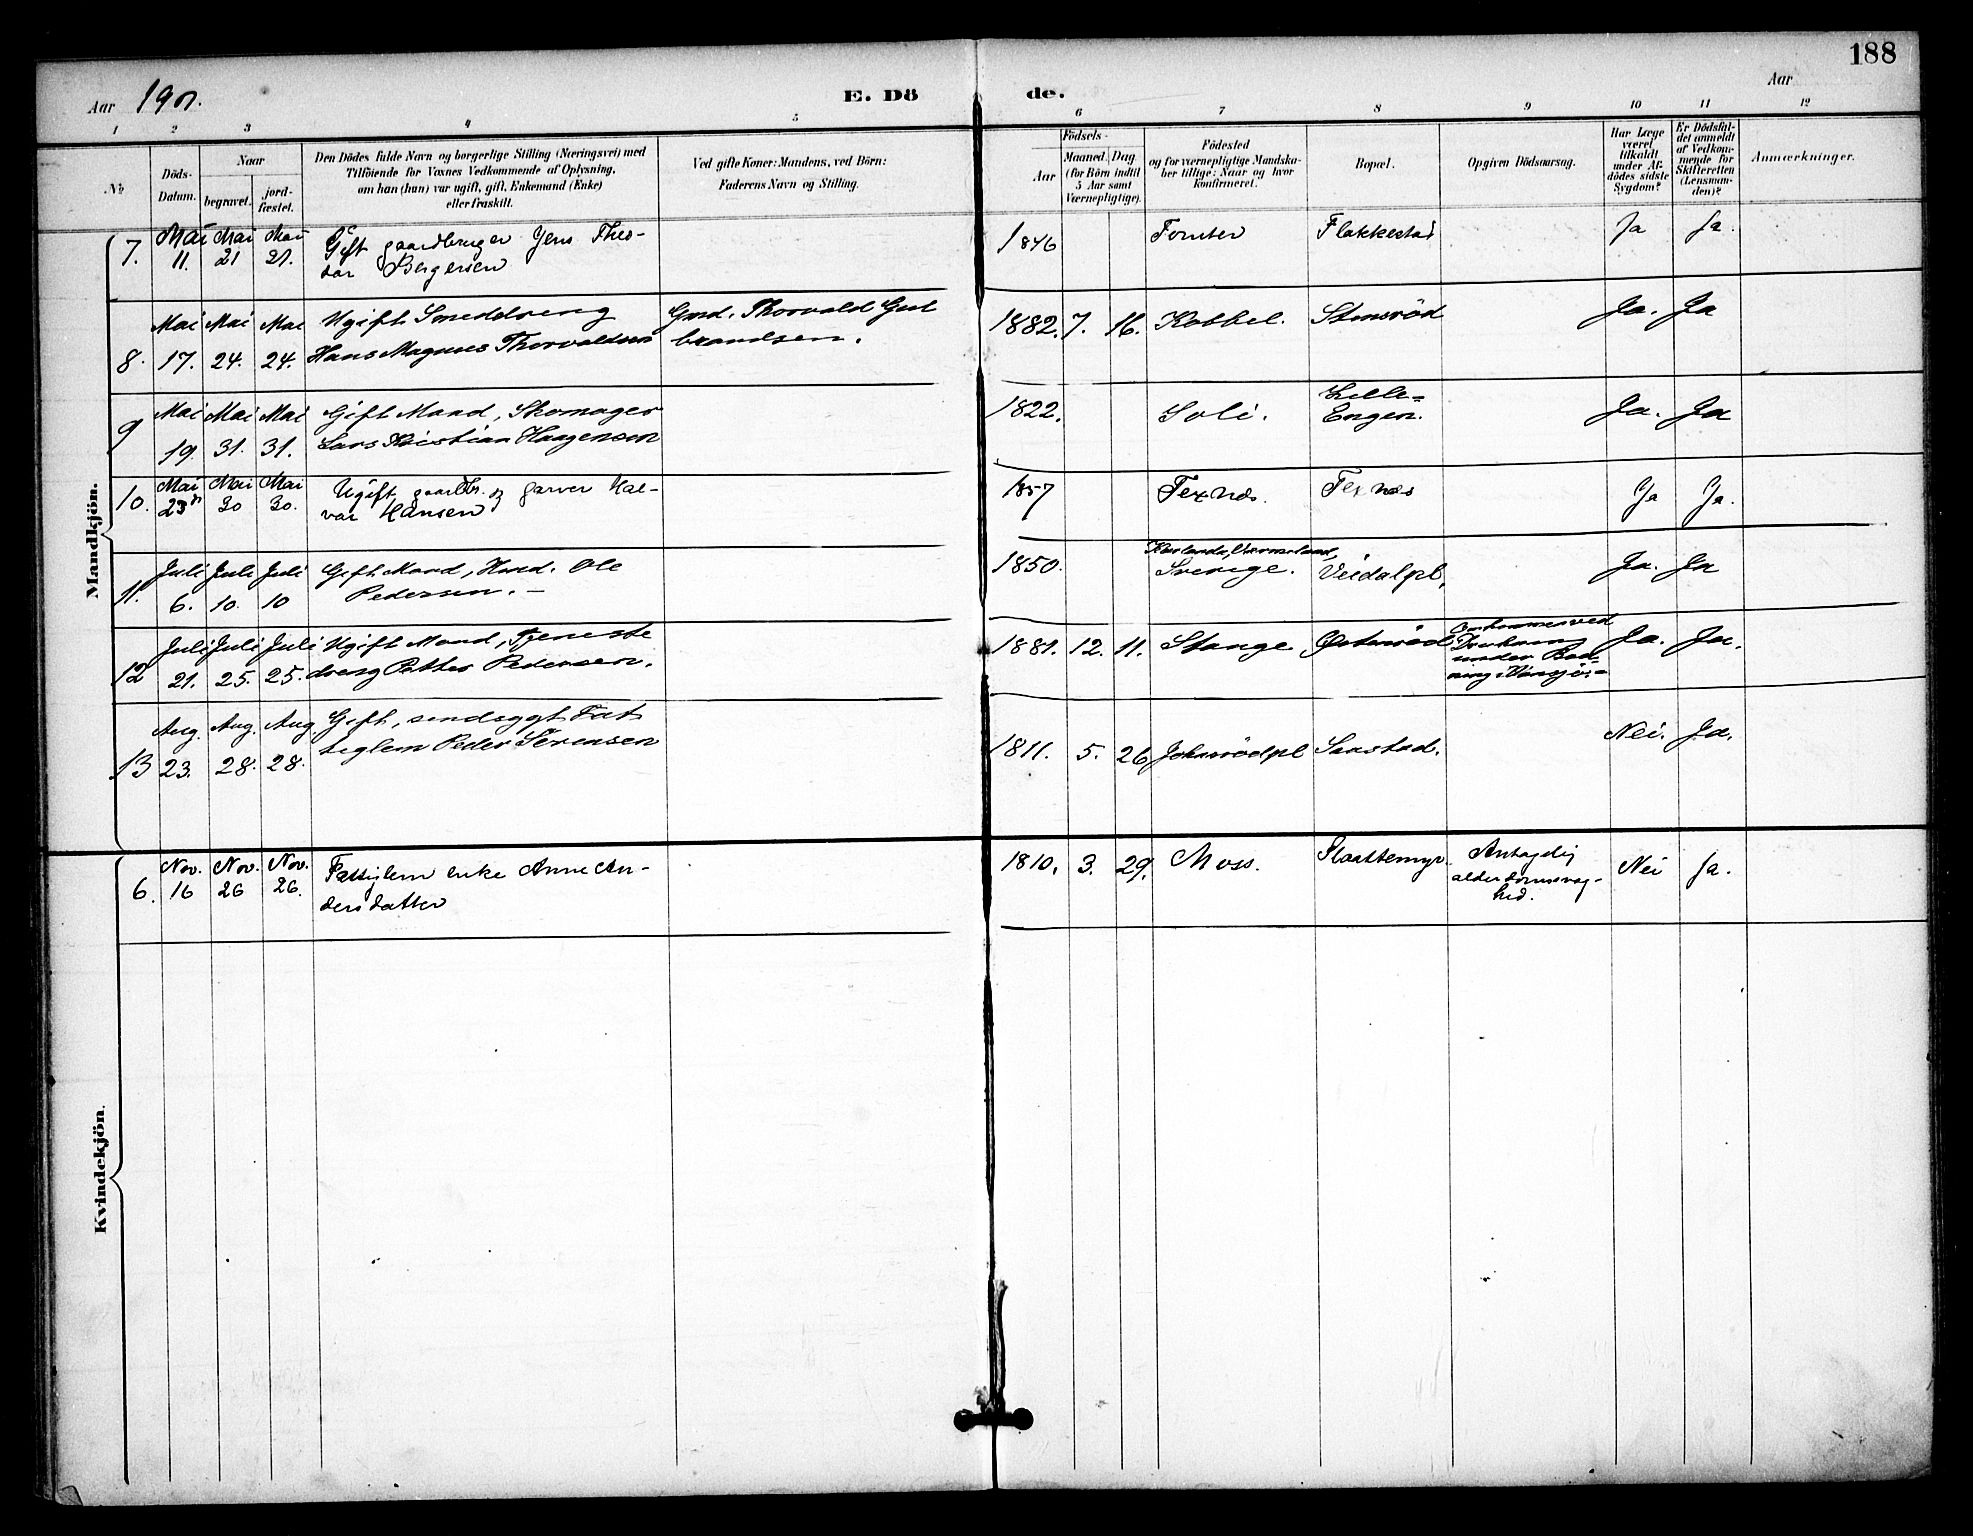 188
Aar 1901.
E. Dö de.
Aar
1 2 3 4 5 6 7 8 9 10 11 12
№
Döds-
Datum.
Naar
begravet.
jord-
fæstet.
Den Dödes fulde Navn og borgerlige Stilling (Næringsvei) med
Tilföiende for Voxnes Vedkommende af Oplysning,
om han (hun) var ugift, gift, Enkemand (Enke)
eller fraskilt.
Ved gifte Koner: Mandens, ved Börn:
Faderens Navn og Stilling.
Födsels-
Aar
Maaned. Dag
(for Börn indtil
5 Aar samt
Værnepligtige).
Födested
og for værnepligtige Mandska-
ber tillige: Naar og hvor
konfirmeret.
Bopæl.
Opgiven Dödsaarsag.
Har Læge
været
tilkaldt
under Af-
dödes sidste
Sygdom?
Er Dödsfal-
det anmeldt
af Vedkom-
mende for
Skifteretten
(Lensman-
den)?
Anmærkninger.
Mandkjön.
7. Mai 11. Mai 21 Mai 21.
Gift gaardbruger Jens Theo-
dor Bergersen
1846 Tomter Flakkestad Ja Ja.
8. Mai 17. Mai 24. Mai 24.
Ugift Smeddreng
Hans Magnus Thorvaldsen
Gmd. Thorvald Gul
brandsen.
1882. 7. 16. Kobbel. Stensröd Ja. Ja
9 Mai 19. Mai 31. Mai 31.
Gift Mand, Skomager
Lars Kristian Haagensen
1822. Soli.
Lille-
Engen.
Ja. Ja
10. Mai 23 Mai 30 Mai 30.
Ugift gaardbr. og garver Hal-
vor Hansen
1857 Texnæs. Texnæs Ja Ja.
11. Juli 6. Juli 10. Juli 10
Gift Mand, Hmd. Ole
Pedersen.
1850.
Værmeland,
Sverige.
Veidalpl. Ja. Ja
12 Juli 21. Juli 25. Juli 25.
Ugift Mand, Tjeneste
dreng Petter Pedersen.
1881. 12. 11. Stange Østeröd
Omkommet ved
Drukning
under Bad-
ning i Vansjö.
Ja. Ja.
13 Aug. 23. Aug. 28. Aug 28.
Gift, sindsygt Fat
tiglem Peder Sörensen
1811. 5. 26 Johnsrödpl Saastad. Nei. Ja.
Kvindekjön.
6. Nov. 16 Nov. 26 Nov. 26.
Fattiglem enke Anne An-
dersdatter
1810. 3. 29. Moss. Slaattemyr.
Antagelig
alderdomssvag-
hed.
Nei Ja.